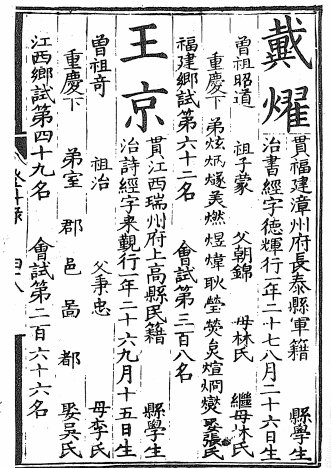 戴燿
貫福建漳州府長泰縣軍籍 縣學生
治書經字德輝行一年二十七八月二十六日生
曾祖昭道 祖子蒙 父朝錦 母林氏 繼母林氏
重慶下 弟炫炳燧美燃煜煒耿瑩熒炱煊烱爕 娶張氏
福建鄉試第六十二名 會試第三百八名
王京
貫江西瑞州府上高縣民籍 縣學生
治詩經字來覲行一年二十六九月十五日生
曾祖奇 祖治 父秉忠 母李氏
重慶下 弟室 郡 邑 啚 都 娶吳氏
江西鄉試第四十九名 會試第二百六十六名